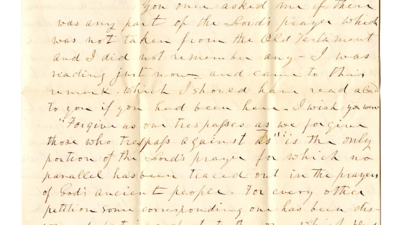 You once asked me if there
was any part of the Lord's prayer which
was not taken from the Old Testament
and I did not remember any - I was
reading just now and came to this
remark which I should have read aloud
to you if you had been here. I wish you were
"Forgive us our trespasses as we forgive
those who trespass against us" "is the only
portion of the Lord's prayer for which no
parallel has been traced out in the prayers
of God's ancient people. For every other
petition some corresponding one has been dis-